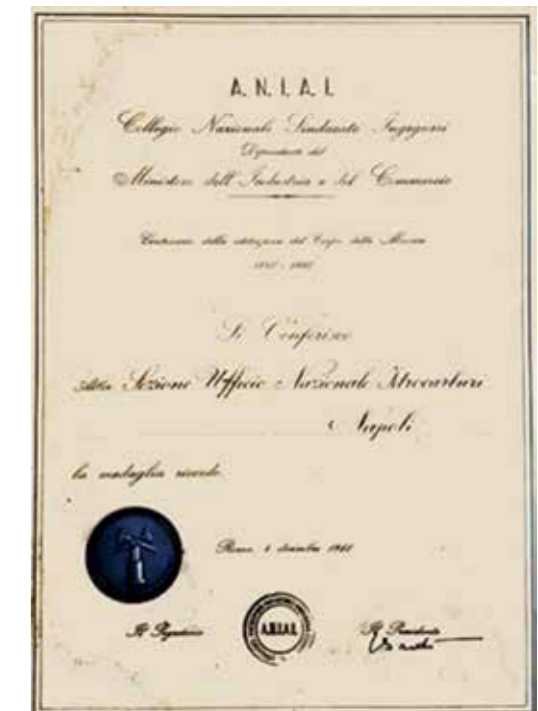 A.N.I.A.I.
Collegio Nazionale Sindacato Ingegneri
Dipendenti del
Ministero dell'Industria e del Commercio
Centenario della istituzione del Corpo delle Miniere
Si Conferisce
Alla Sezione Ufficio Nazionale Idrocarburi
Napoli
la medaglia ricordo
Roma, 4 dicembre
Il Segretario
A.N.I.A.I.
Il Presidente